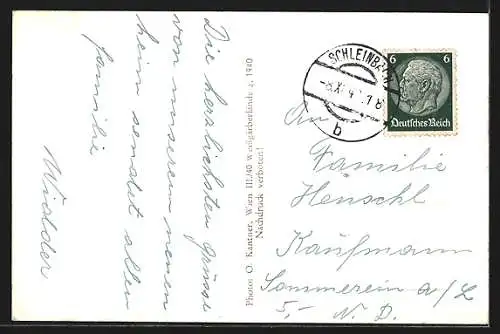 Die herzlichsten Grüsse
von unserem neuen
heim sendet allen
familie
Widder
Photos O. Kantner, Wien III./40 Weißgärberlände 4, 1940
Nachdruck verboten!
SCHLEINBACH
b
6 6
Deutsches Reich
An
Familie
Henschl
Kaufmann
Sommerein a/L
5,- N. D.